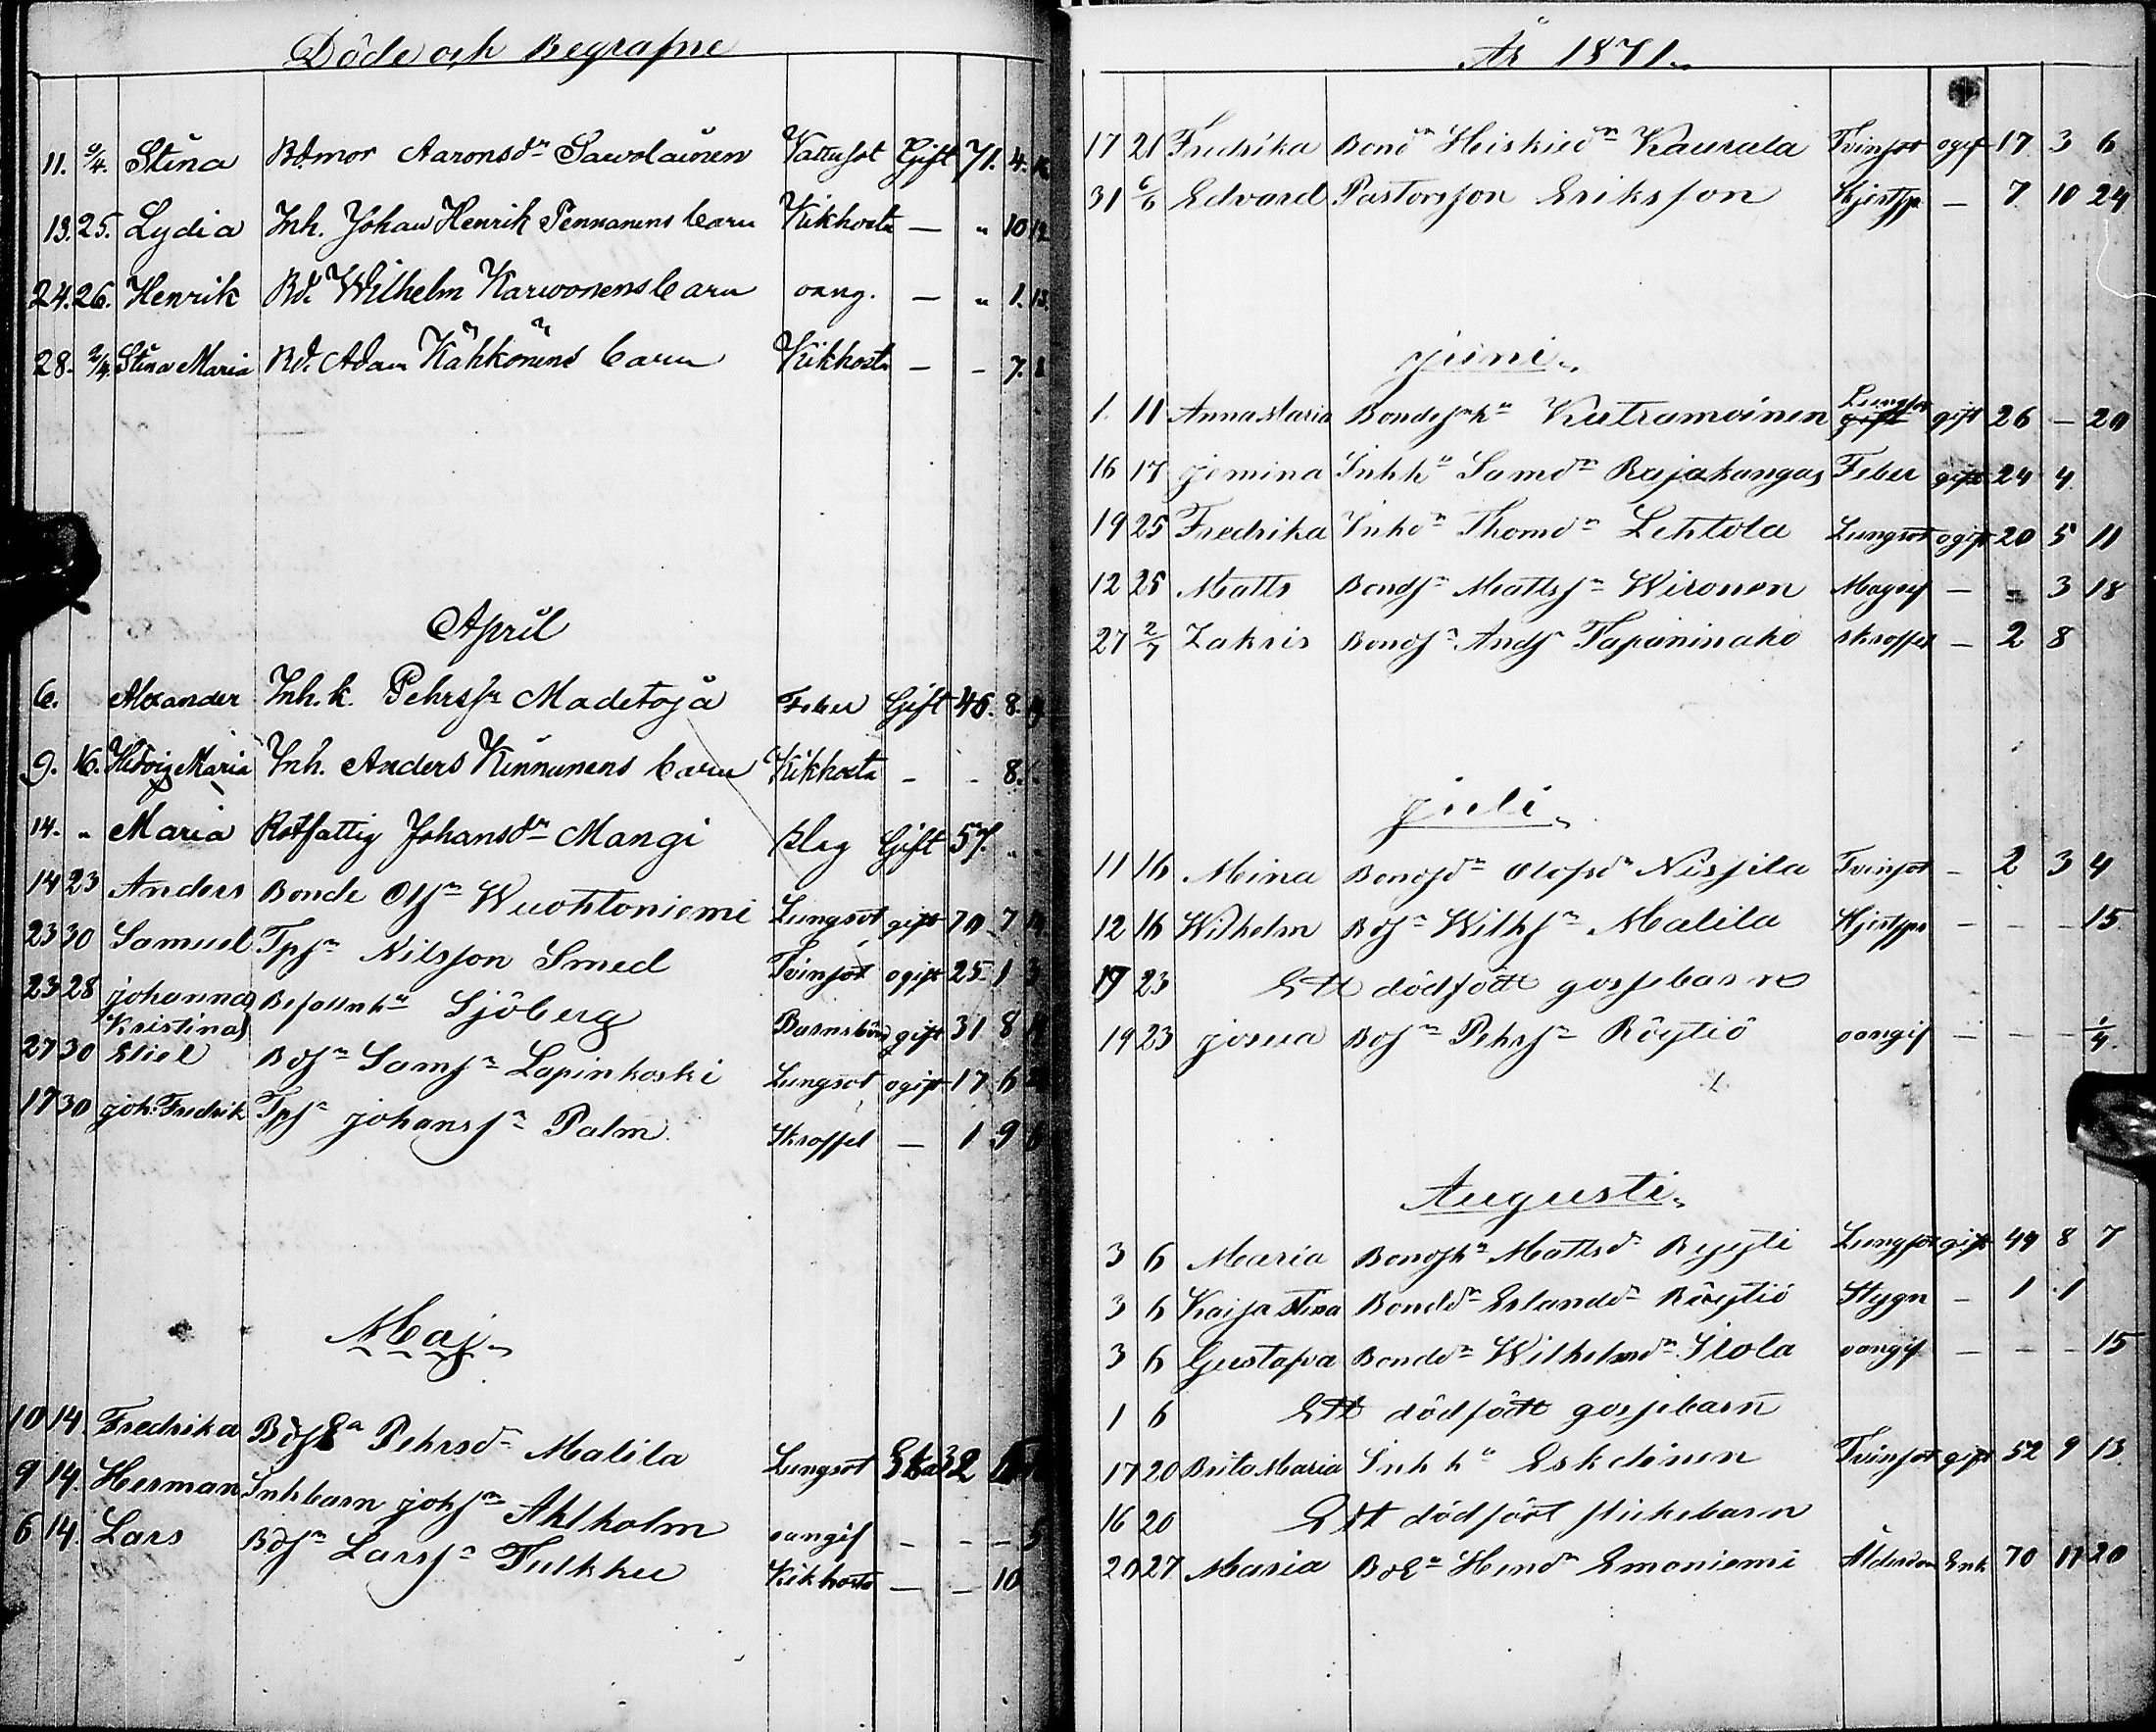 Döde och Begrafne
11. 9/4. Stina Bdmor Aaronsdr Sawolainen Vattusot Gift 71. 4.
13. 25. Lydia Inh. Johan Henrik Pennanens barn Kikhosta — " 10 12
24. 26. Henrik Bd. Wilhelm Karwonens barn oang. — " 1. 13.
28. 2/4. Stina Maria Bd. Adam Kähkönens barn Kikhosta — - 7.
April
6. Alexander Inh. k. Pehrssn Madetoja Feber Gift 46. 8.
9. 16. Hedvig Maria Inh. Anders Kinnunens barn Kikhosta - - 8.
14. " Maria Rotfattig Johansdr Mangi slag Gift 57. "
14 23 Anders Bonde Olsn Wuohtoniemi Lungsot gift 70 7
23 30 Samuel Tpsn Nilsson Smed Tvinsot ogift 25 1 3
23 28 johanna Kristina Befallnhu Sjöberg Barnsbörd gift 31 8
27 30 Eliel Bdsn Samsn Lapinkoski Lungsot ogift 17 6
17 30 joh. Fredrik Tpsn johanssn Palm Skroffel — 1 9
Maj
10 14. Fredrika Pehrsdr Malila Lungsot Enka 32
9 14. Herman Inhbarn johsn Ahlholm oangif - - - 5
6 14. Lars Bdsn Larssn Tulkku Kikhosta — — 10
År 1871.
17 21 Fredrika Bonddr Heiskiedr Kaurala Tvinsot ogif 17 3 6
31 6/6 Edvard Pastorsson Eriksson — 7 10 24
juni
1. 11 Anna Maria Kutramoinen Lungsot gift gift 26 — 20
16 17 jemina Inhhu Samdr Rajakangas Feber gift 24 4
19 25 Fredrika Inhdr Thomdr Lehtola Lungsot ogift 20 5 11
12 25 Matts Bondsn Mattssn Wironen — " 3 18
27 2/7 Zakris Bondsn Andsn Tapaninaho skroffel — 2 8
juli
11 16 Mina Bondsdr Olofsdr Nisjila Tvinsot - 2 3 4
12 16 Wilhelm Bdsn Wilhsn Malila — - - 15
17 23 Ett dödfödt gossebarn
19 23 josua Bdsn Pehrsn Röytiö oangif — — — 1/4.
Augusti
3 6 Maria Bondhu Mattsdr Ryyti Lungsot gift 49 8 7
3 6 Kaija Stina Bonddr Erlanddr Röytiö Stygn — 1 1
3 6 Gustafva Bonddr Wilhelmdr Ilola oangif — — - 15
1 6 Ett dödfödt gossebarn
17 20 Brita Maria Inhhu Eskelinen Tvinsot gift 52 9 13.
16 20 Ett dödfödt flickebarn
20 27 Maria BdEa Hendr Emoniemi Ålderdom Enk 70 11 20